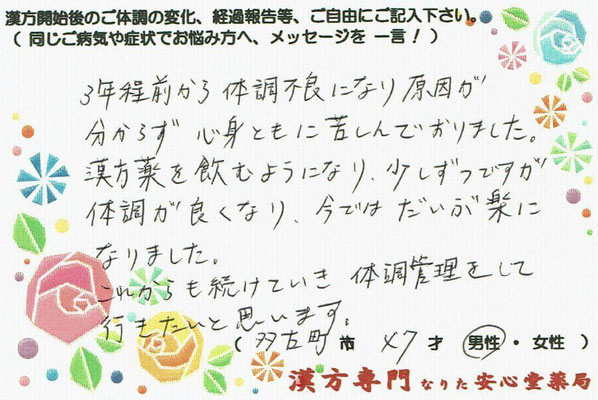 漢方開始後のご体調の変化、経過報告等、ご自由にご記入下さい。
( 同じご病気や症状でお悩み方へ、メッセージを 一言！ )
3年程前から 体調不良になり 原因が
分からず 心身ともに 苦しんでおりました。
漢方薬を飲むようになり、少しずつですが
体調が 良くなり、今では だいぶ楽に
なりました。
これからも続けていき 体調管理をして
行きたいと思います。
( 多古町 市 47 才 男性 ・ 女性 )
漢方専門 なりた 安心堂薬局